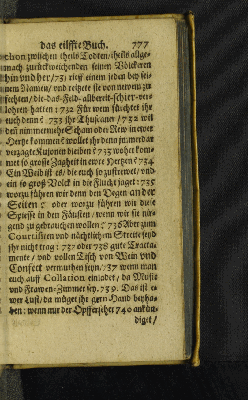 das eilffte Buch. 777
chon zwischen theils Todten/theils allge-
mach zurückweichenden seinen Völckeren
hin und her/731 rieff einem jeden bey sei-
nem Namen/ und reitzete sie von newem zu
fechten/die das Feld allbereit schier ver-
lohren hatten: 732 Für wem fürchtet ihr
euch denn? 733 ihr Thuscaner/732 wil
den nimmermehr Scham oder Rew in ewer
Hertze kommen? wollet ihr denn immerdar
verzagte Kujonen bleiben? 733 woher kom-
met so grosse Zagheit in ewre Hertzen? 734
Ein Weib ist es/die euch so zustrewet/und
ein so groß Volck in die Flucht jaget: 735
worzu führen wir denn den Degen an der
Seiten? oder worzu führen wir die
Spiesse in den Fäusten/wenn wir sie nir-
gend zu gebrauchen wollen? 736 Aber zum
Courtisiren und nächtlichem Streite seyd
ihr nicht trag: 737 oder 738 gute Tracta-
mente/ und vollen Tisch von Wein und
Confect vermuthen seyn/737 wenn man
euch auff Collation einladet/da Musiq
und Frawen-Zimmer sey. 739. Das ist e-
wer Lust/da müget ihr gern Hand beyha-
ben: wenn nur der Opfferseher 740 ankün-
diget/